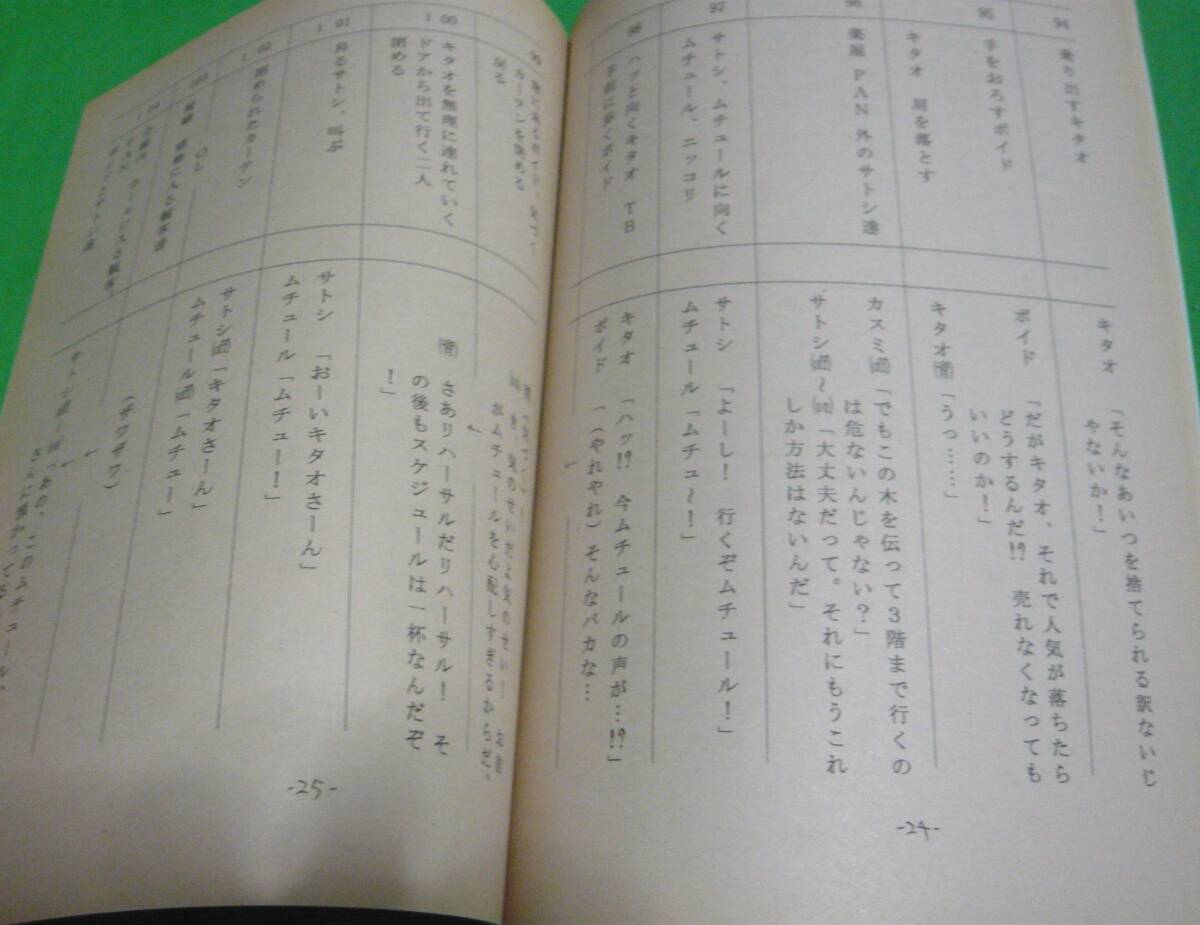 94
乗り出すキタオ
キタオ 「そんなあいつを捨てられる訳ないじ
ゃないか！」
95
手をおろすボイド
ボイド 「だがキタオ、それで人気が落ちたら
どうするんだ!? 売れなくなっても
いいのか！」
キタオ 肩を落とす
キタオ 「うっ……」
96
楽屋 PAN 外のサトシ達
カスミ 「でもこの木を伝って3階まで行くの
は危ないんじゃない？」
サトシ 〜 「大丈夫だって。それにもうこれ
しか方法はないんだ」
97
サトシ、ムチュールに向く
ムチュール、ニッコリ
サトシ 「よーし！ 行くぞムチュール！」
ムチュール「ムチュ〜！」
98
ハッと向くキタオ TB
手前に歩くボイド
キタオ 「ハッ!? 今ムチュールの声が…!?」
ボイド 「（やれやれ）そんなバカな…
-24-
99
カーテンを閉める
戻る
がムチュールを心配しすぎるからだ。
100
キタオを無理に連れていく
ドアから出て行く二人
閉める
さあリハーサルだリハーサル！ そ
の後もスケジュールは一杯なんだぞ
！」
101
サトシ、叫ぶ
サトシ 「おーいキタオさーん」
ムチュール「ムチュー！」
102
閉められたカーテン
サトシ 「キタオさーん」
ムチュール 「ムチュー」
103
OL
（ザワザワ）
104
サトシ 「あの、このムチュール、
-25-